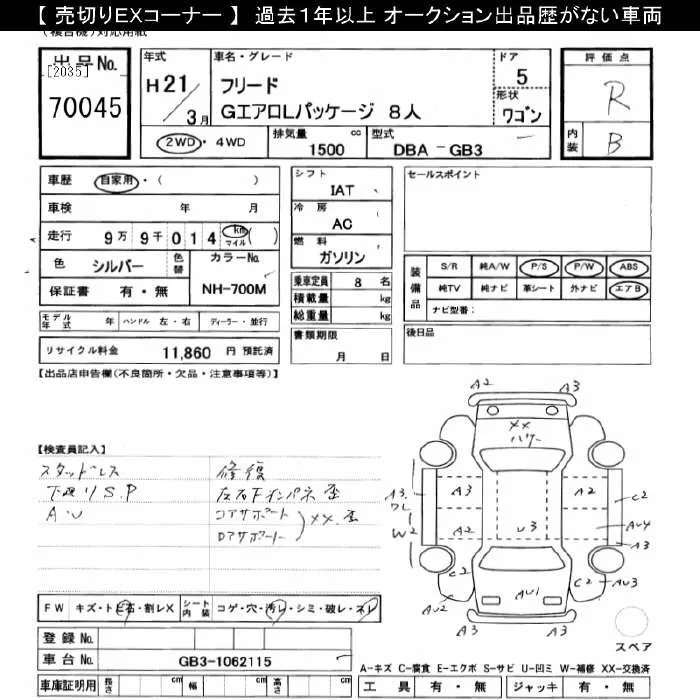 【 売切りEXコーナー 】 過去１年以上 オークション出品歴がない車両
(複合機)対応用紙
出 品 No.
[2035]
70045
年式
H 21
3月
車名・グレード
フリード
GエアロLパッケージ 8人
ドア
5
形状
ワゴン
2WD・4WD
排気量 cc
1500
型式
DBA - GB3
評 価 点
R
内装
B
車歴 自家用・( )
車検 年 月
走行 9万 9千 0 1 4 km マイル ( )
色 シルバー 色替
カラーNo.
NH-700M
保証書 有・無
モデル年式 年 ハンドル 左・右 ディーラー・並行
リサイクル料金 11,860 円 預託済
シフト
IAT
冷 房
AC
燃 料
ガソリン
乗車定員 8 名
積載量 kg
総重量 kg
書類期限
月 日
セールスポイント
装備品
S/R 純A/W P/S P/W ABS
純TV 純ナビ 革シート 外ナビ エアB
ナビ型番:
後日品
【出品店申告欄(不良箇所・欠品・注意事項等)】
【検査員記入】
スタッドレス
下廻りS.P
A.U
修復
左右Fインパネ歪
コアサポート
ロアサポート
XX.歪
A2
A3
XX
A3.
ワレ
W2
A3
A2
A2
A2
U3
C2
AU4
A3
C2
AU2
AU1
C2
AU3
A3
A3
スペア
F W キズ・トビ石・割レX シート内装 コゲ・穴・汚レ・シミ・破レ・スレ
登 録 No.
車 台 No. GB3-1062115
車庫証明用 長さ cm 幅 cm 高さ cm
A-キズ C-腐食 E-エクボ S-サビ U-凹ミ W-補修 XX-交換済
工 具 有 ・ 無 ジャッキ 有 ・ 無